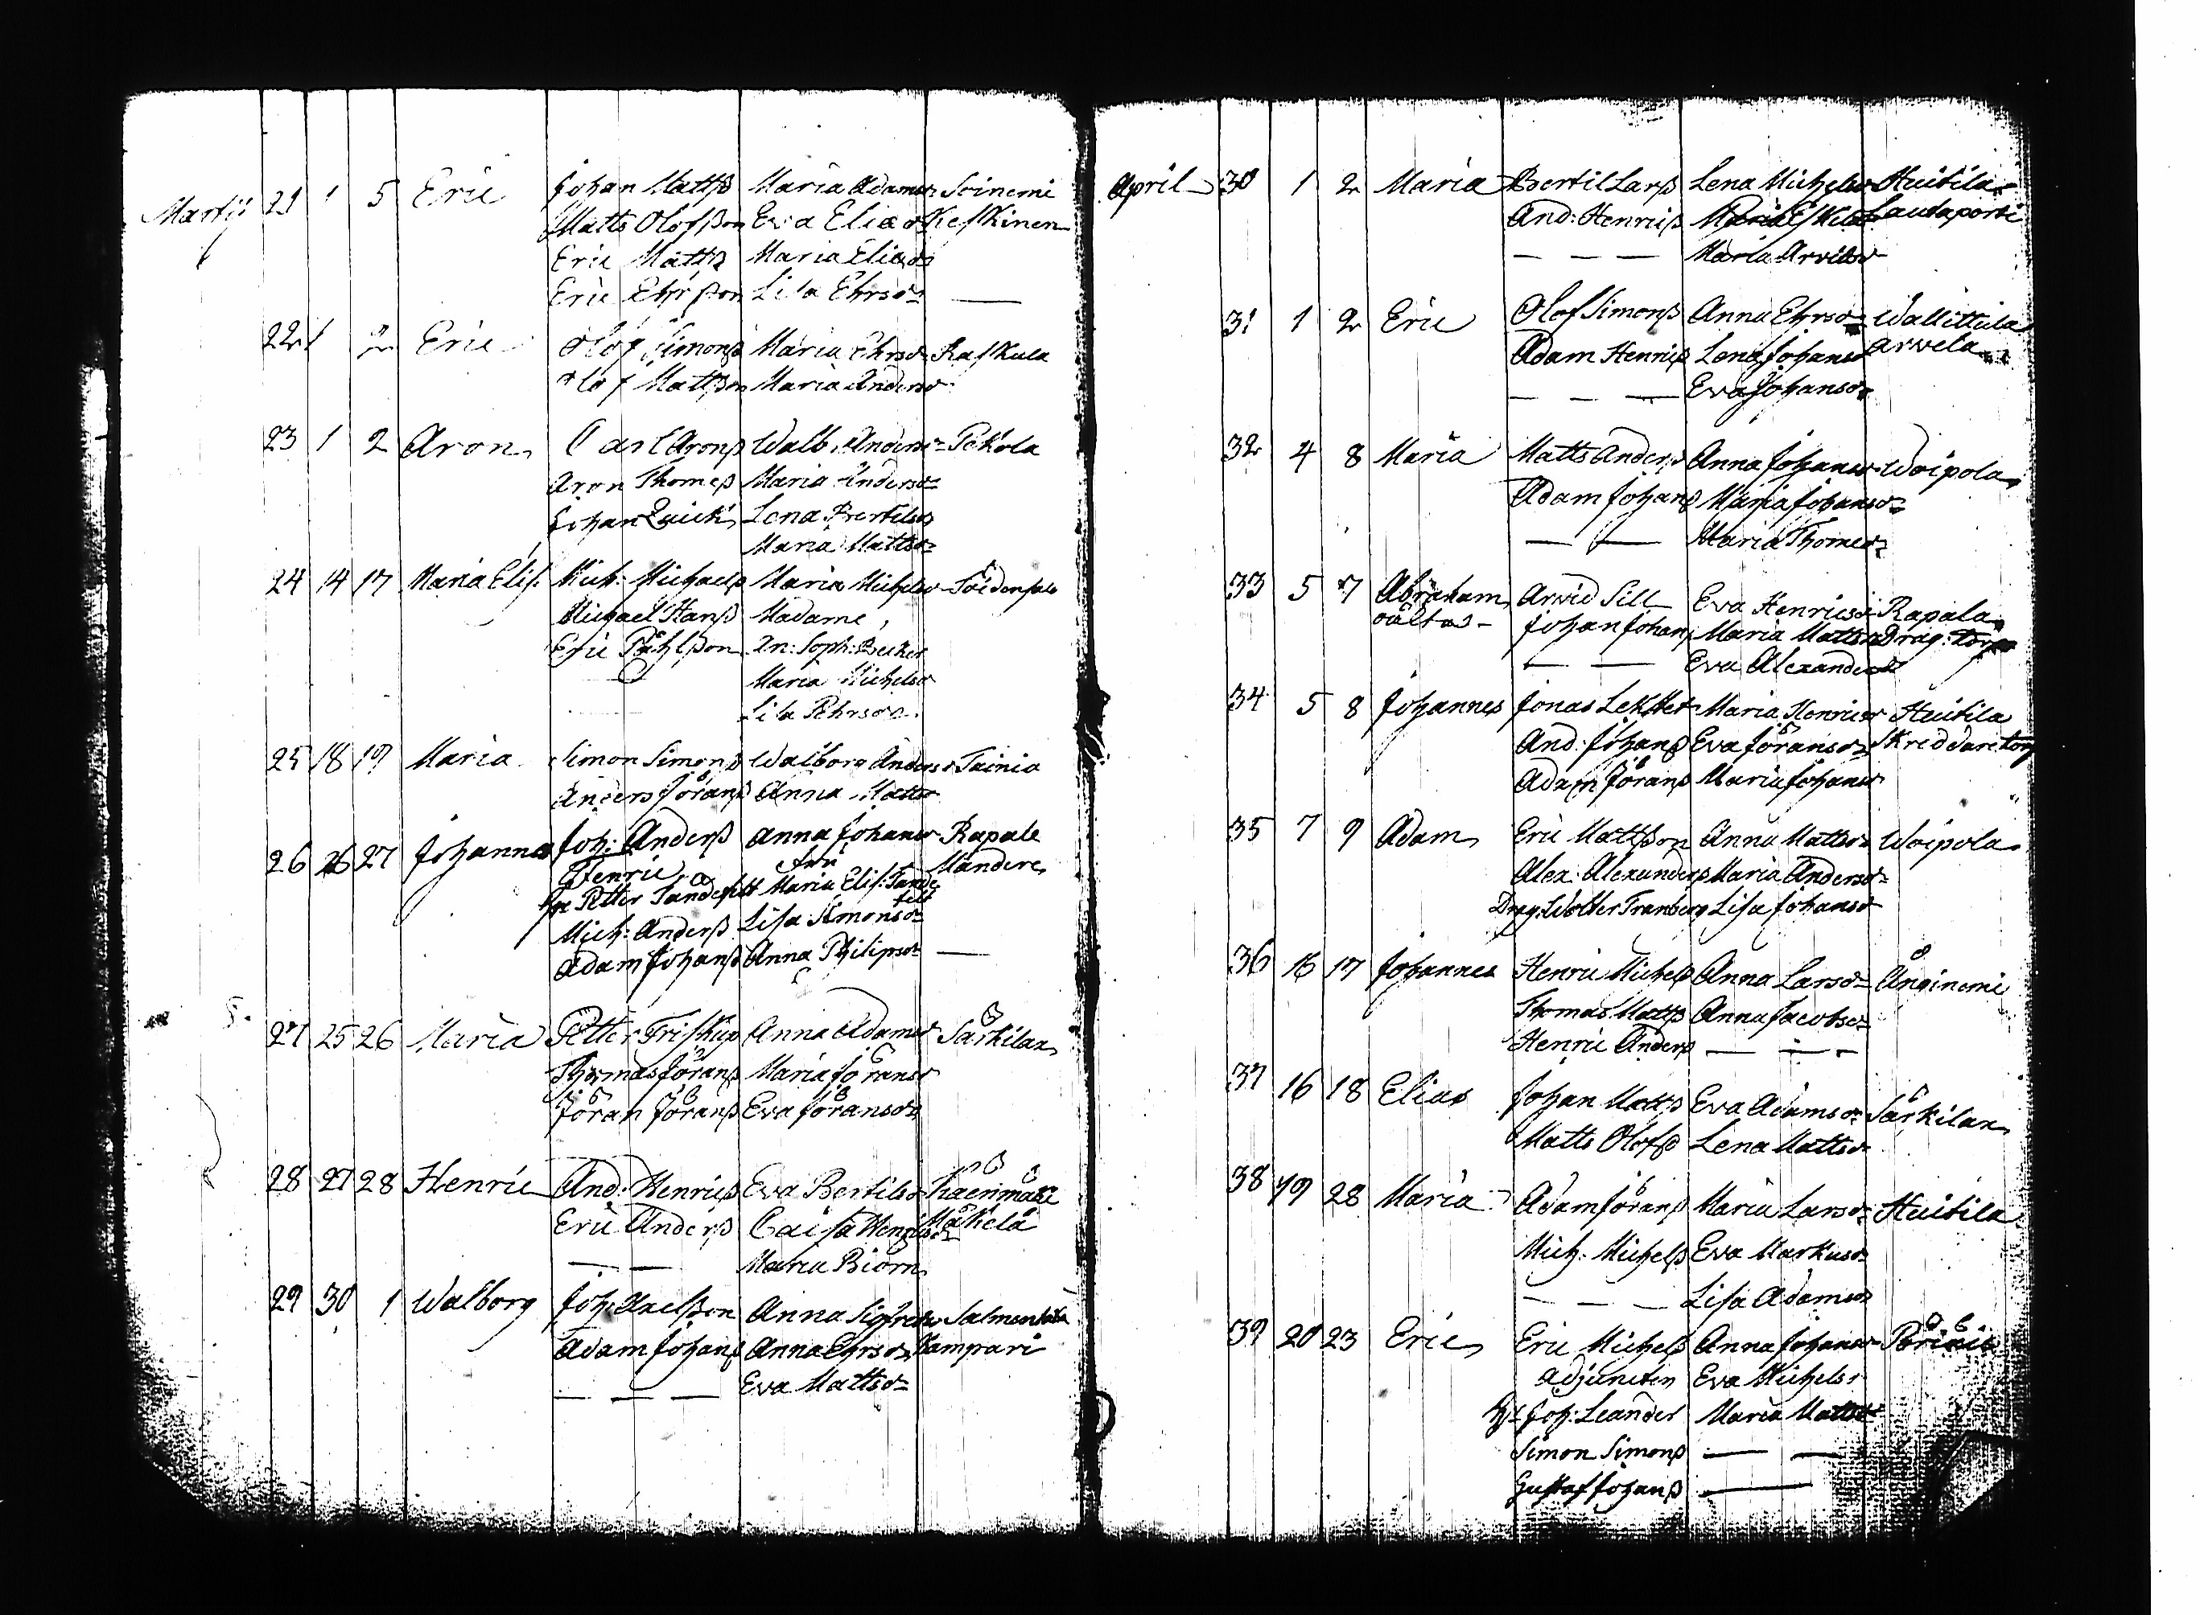 Martij 21 1 5 Eric Johan Mattsß Maria Adamsdr Soinemi
Matts Olofsson Eva Eliædr Keskinen
Eric Mattsß Maria Eliædr
Eric Ehrsson Lisa Ehrsdr —
22 1 2 Eric Olof Simonsß Maria Ehrsdr Raskula
Olof Mattsson Maria Andersdr
23 1 2 Aron Carl Aronsß Walb: Andersdr Pekola
Aron Thomesß Maria Andersdr
Johan Quick Lena Bertilsdr
Maria Mattsdr
24 14 17 Maria Elis: Mich: Michaelsß Maria Michelsdr
Michael Hansß Madame
Eric Påhlsson An: Soph: Becker
Maria Michelsdr
Lisa Pehrsdr
25 18 19 Maria Simon Simonsß Walborg Andersdr Tainio
Anders Jöransß Anna Mattsdr
26 26 27 Johannes Joh: Andersß Anna Johansdr Rapala
Henric fru Mandere
hr Petter Sandefelt Maria Elis: Sande
felt
Mich: Andersß Lisa Simonsdr
Adam Johansß Anna Philipsdr —
27 25 26 Maria Petter Friskup Anna Adamsdr Särkilax
Thomas Jöransß Maria Jöransdr
Jöran Jöransß Eva Jöransdr
28 27 28 Henric And: Henricsß Eva Bertilsdr Kaenmäki
Eric Andersß Caisa Henricsdr Mäkelä
— — Maria Biörn
29 30 1 Walborg Joh: Axelsson Anna Sigfredsdr Salmentaka
Adam Johansß Anna Ehrsdr Kampari
— — — Eva Mattsdr
April 30 1 2 Maria Bertil Larsß Lena Michelsdr Huitila
And: Henricsß Maria Eskilsdr Lautaporti
— — — Maria Arvidsdr
31 1 2 Eric Olof Simonsß Anna Ehrsdr Wallittula
Adam Henricsß Lena Johansdr Arvela
— — — Eva Johansdr
32 4 8 Maria Matts Andersß Anna Johansdr Woipola
Adam Johansß Maria Johansdr
— — Maria Thomesdr
33 5 7 Abraham Arvid Sill Eva Henricsdr Rapala
oälta Johan Johansß Maria Mattsdr Drag: torp
— — Eva Alexandersdr
34 5 8 Johannes Jonas Lekster Maria Henricsdr Huitila
And: Johansß Eva Jöransdr Skreddare torp
Adam Jöransß Maria Johansdr
35 7 9 Adam Eric Mattsson Anna Mattsdr Woipola
Alex: Alexandersß Maria Andersdr
Drag: Wolter Tranberg Lisa Johansdr
36 16 17 Johannes Henric Michelsß Anna Larsdr Änginemi
Thomas Mattsß Anna Jacobsdr
Henric Andersß — — —
37 16 18 Elias Johan Mattsß Eva Adamsdr Särkilax
Matts Olofsß Lena Mattsdr
38 19 28 Maria Adam Jöransß Maria Larsdr Huitila
Mich: Michelsß Eva Markusdr
— — — Lisa Adamsdr
39 20 23 Eric Eric Michelsß Anna Johansdr
Adjuncten Eva Michelsdr
hr Joh: Leander Maria Mattsdr
Simon Simonsß — —
Gustaf Johansß —